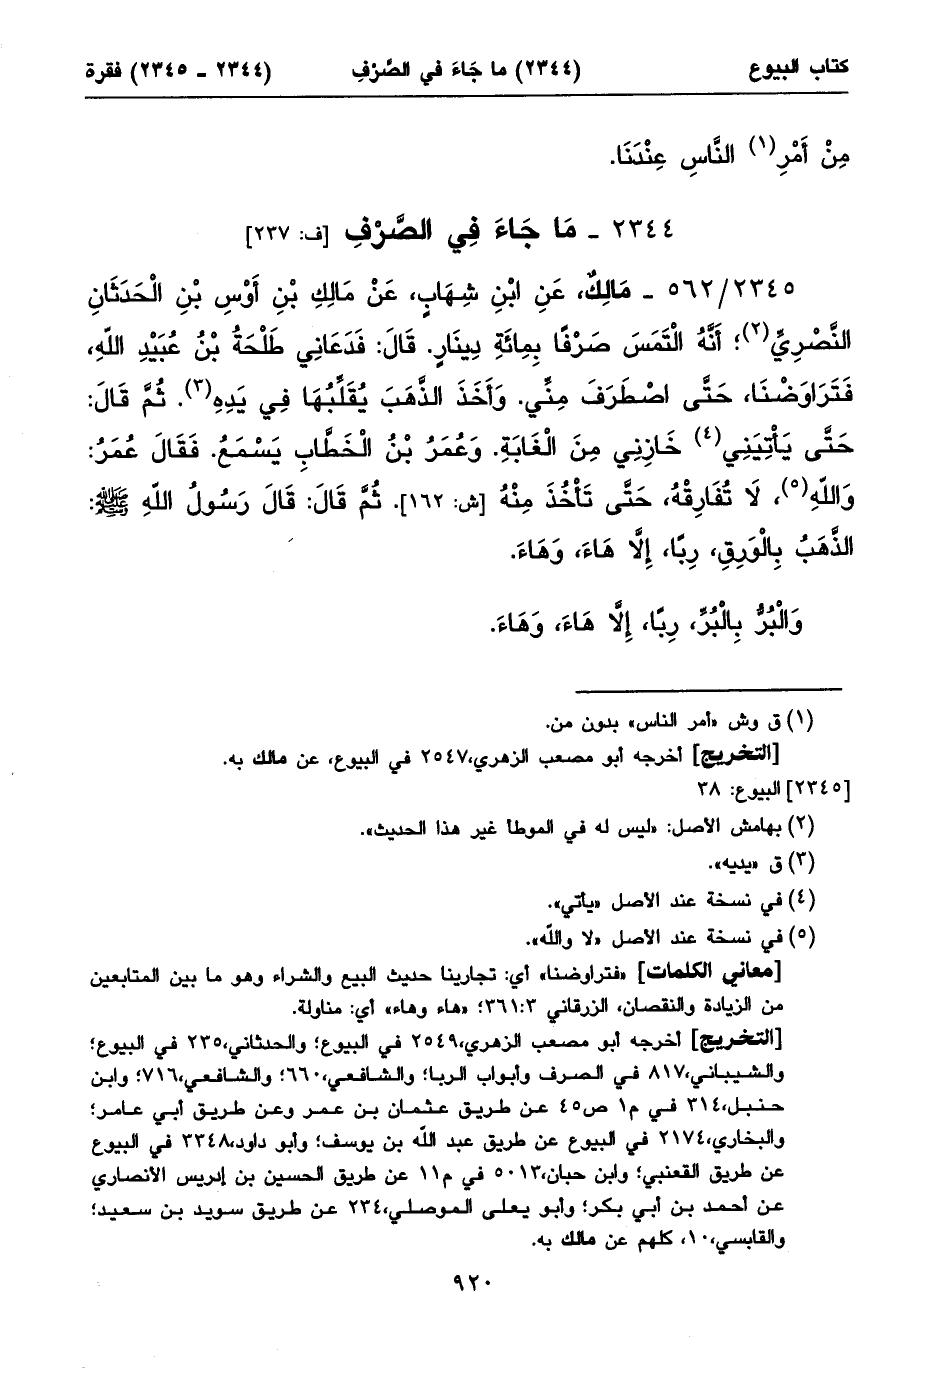 كتاب البيوع (٢٣٤٤) ما جَاءَ في الصَّرْفِ (٢٣٤٤ ـ ٢٣٤٥) فقرة
مِنْ أَمْرِ(١) النَّاسِ عِنْدَنَا.
٢٣٤٤ ـ مَا جَاءَ فِي الصَّرْفِ [ف: ٢٣٧]
٥٦٢/٢٣٤٥ ـ مَالِكٌ، عَنِ ابْنِ شِهَابٍ، عَنْ مَالِكِ بْنِ أَوْسِ بْنِ الْحَدَثَانِ
النَّصْرِيِّ(٢)؛ أَنَّهُ الْتَمَسَ صَرْفًا بِمِائَةِ دِينَارٍ. قَالَ: فَدَعَانِي طَلْحَةُ بْنُ عُبَيْدِ اللَّهِ،
فَتَرَاوَضْنَا، حَتَّى اصْطَرَفَ مِنِّي. وَأَخَذَ الذَّهَبَ يُقَلِّبُهَا فِي يَدِهِ(٣). ثُمَّ قَالَ:
حَتَّى يَأْتِيَنِي(٤) خَازِنِي مِنَ الْغَابَةِ. وَعُمَرُ بْنُ الْخَطَّابِ يَسْمَعُ. فَقَالَ عُمَرُ:
وَاللَّهِ(٥)، لَا تُفَارِقْهُ، حَتَّى تَأْخُذَ مِنْهُ [ش: ١٦٢]. ثُمَّ قَالَ: قَالَ رَسُولُ اللَّهِ ﷺ:
الذَّهَبُ بِالْوَرِقِ، رِبًا، إِلَّا هَاءَ، وَهَاءَ.
وَالْبُرُّ بِالْبُرِّ، رِبًا، إِلَّا هَاءَ، وَهَاءَ.
(١) ق وش «أمر الناس» بدون من.
[التخريج] أخرجه أبو مصعب الزهري،٢٥٤٧ في البيوع، عن مالك به.
[٢٣٤٥] البيوع: ٣٨
(٢) بهامش الأصل: «ليس له في الموطأ غير هذا الحديث».
(٣) ق «يديه».
(٤) في نسخة عند الأصل «يأتي».
(٥) في نسخة عند الأصل «لا والله».
[معاني الكلمات] «فتراوضنا» أي: تجارينا حديث البيع والشراء وهو ما بين المتابعين
من الزيادة والنقصان، الزرقاني ٣:٣٦١؛ «هاء وهاء» أي: مناولة.
[التخريج] أخرجه أبو مصعب الزهري،٢٥٤٩ في البيوع؛ والحدثاني،٢٣٥ في البيوع؛
والشيباني،٨١٧ في الصرف وأبواب الربا؛ والشافعي،٦٦٠؛ والشافعي،٧١٦؛ وابن
حنبل،٣١٤ في م١ ص٤٥ عن طريق عثمان بن عمر وعن طريق أبي عامر؛
والبخاري،٢١٧٤ في البيوع عن طريق عبد الله بن يوسف؛ وأبو داود،٣٣٤٨ في البيوع
عن طريق القعنبي؛ وابن حبان،٥٠١٣ في م١١ عن طريق الحسين بن إدريس الأنصاري
عن أحمد بن أبي بكر؛ وأبو يعلى الموصلي،٢٣٤ عن طريق سويد بن سعيد؛
والقابسي،١٠، كلهم عن مالك به.
٩٢٠